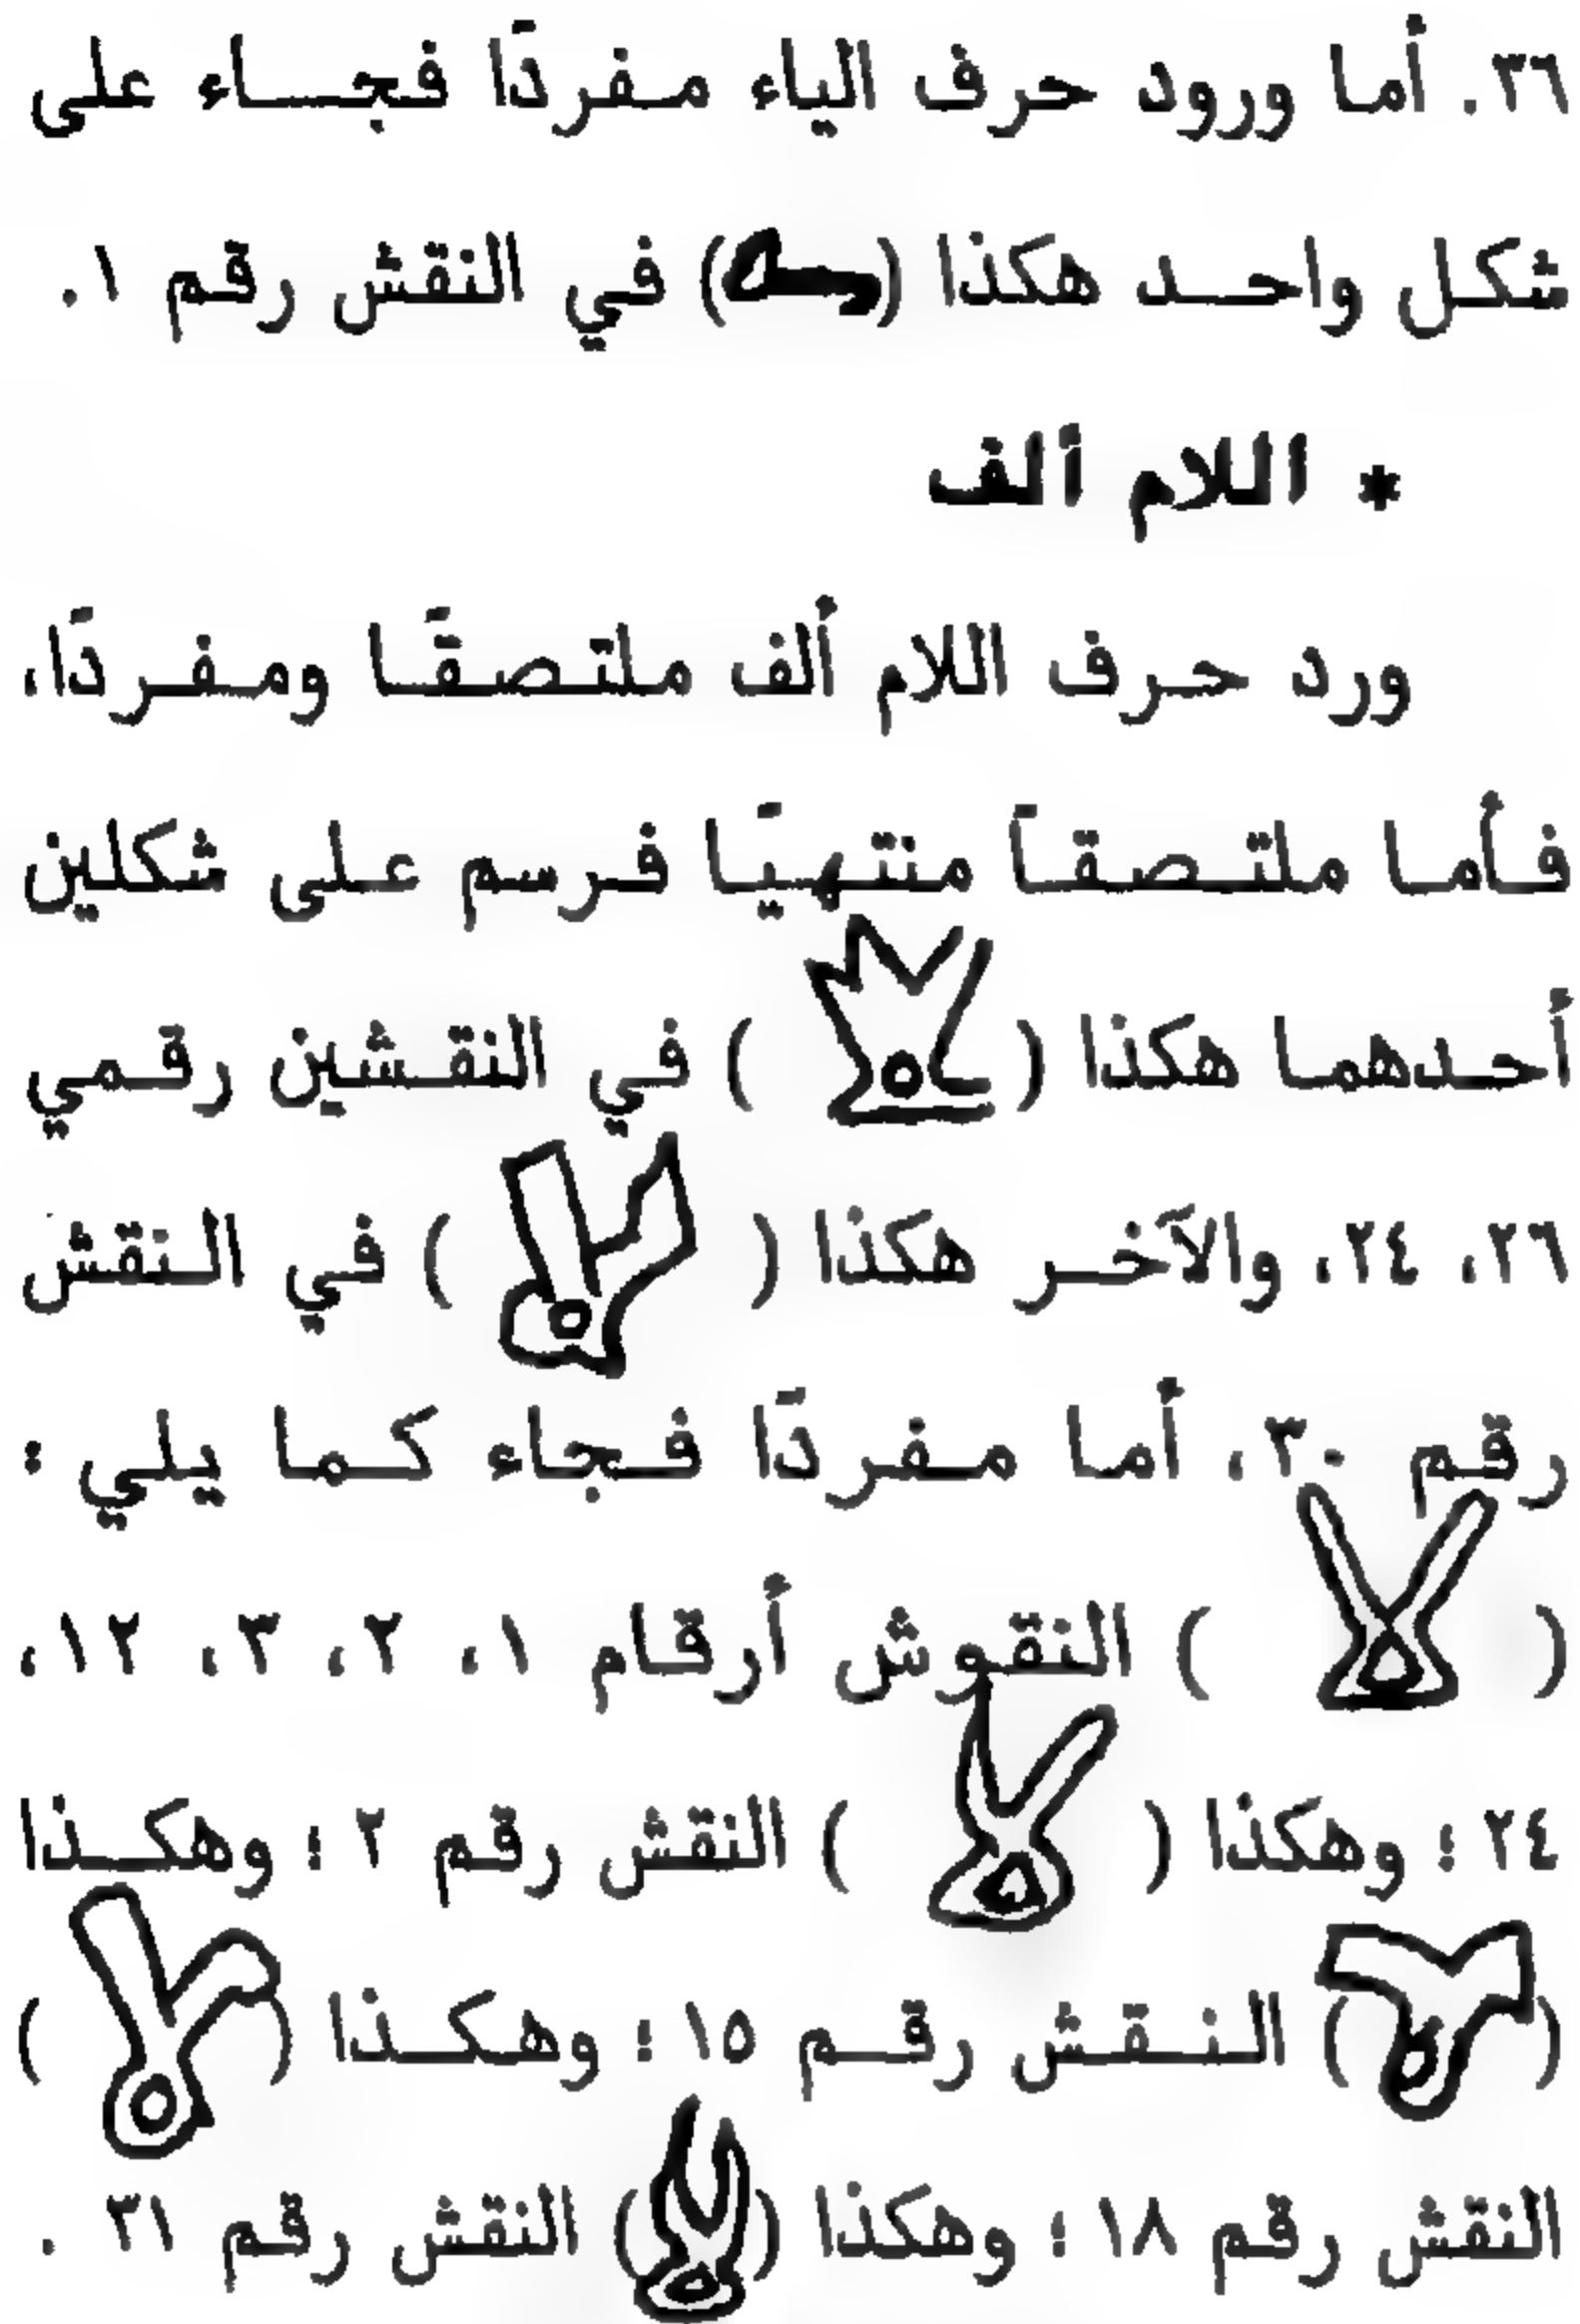 ٣٦. أما ورود حرف الياء مفردًا فجاء على
شكل واحد هكذا () في النقش رقم ١.
* اللام ألف
ورد حرف اللام ألف ملتصقًا ومفردًا،
فأما ملتصقاً منتهيًا فرسم على شكلين
أحدهما هكذا ( ) في النقشين رقمي
٢٦، ٢٤، والآخر هكذا ( ) في النقش
رقم ٣٠، أما مفردًا فجاء كما يلي :
( ) النقوش أرقام ١، ٢، ٣، ١٢،
٢٤ ؛ وهكذا ( ) النقش رقم ٢ ؛ وهكذا
( ) النقش رقم ١٥ ؛ وهكذا ( )
النقش رقم ١٨ ؛ وهكذا ( ) النقش رقم ٣١ .